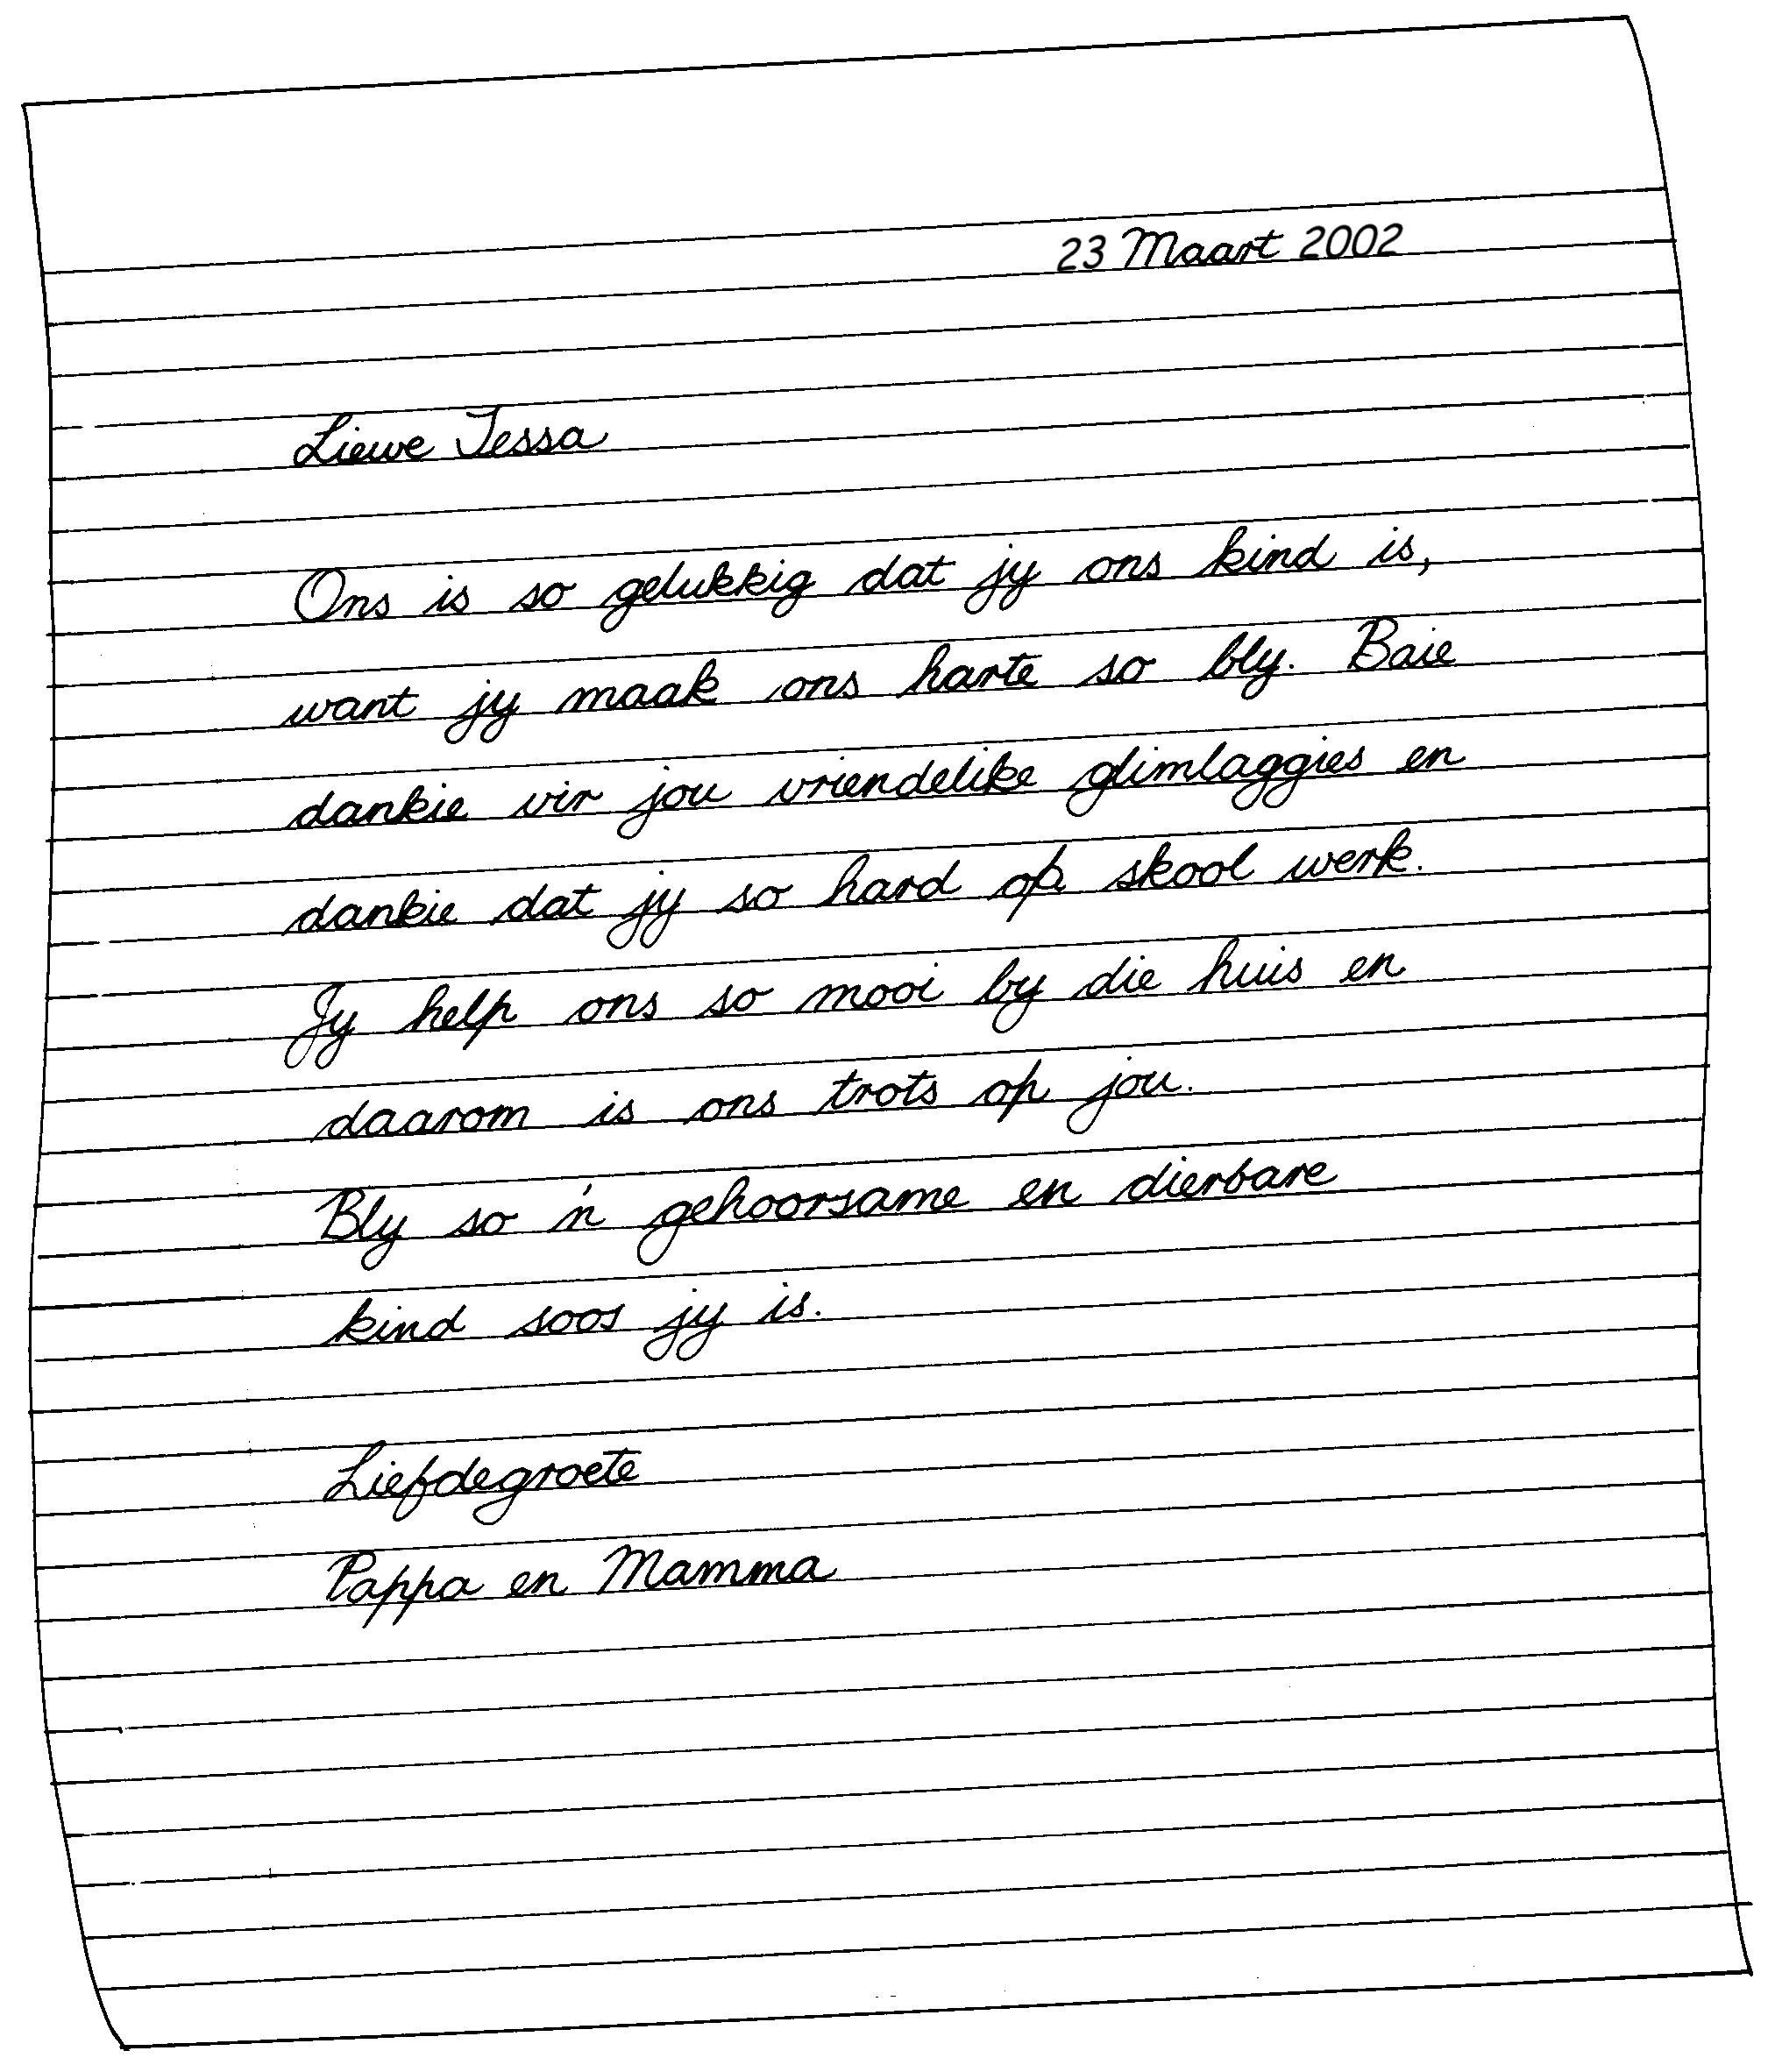 23 Maart 2002
Liewe Tessa
Ons is so gelukkig dat jy ons kind is,
want jy maak ons harte so bly. Baie
dankie vir jou vriendelike glimlaggies en
dankie dat jy so hard op skool werk.
Jy help ons so mooi by die huis en
daarom is ons trots op jou.
Bly so 'n gehoorsame en dierbare
kind soos jy is.
Liefdegroete
Pappa en Mamma